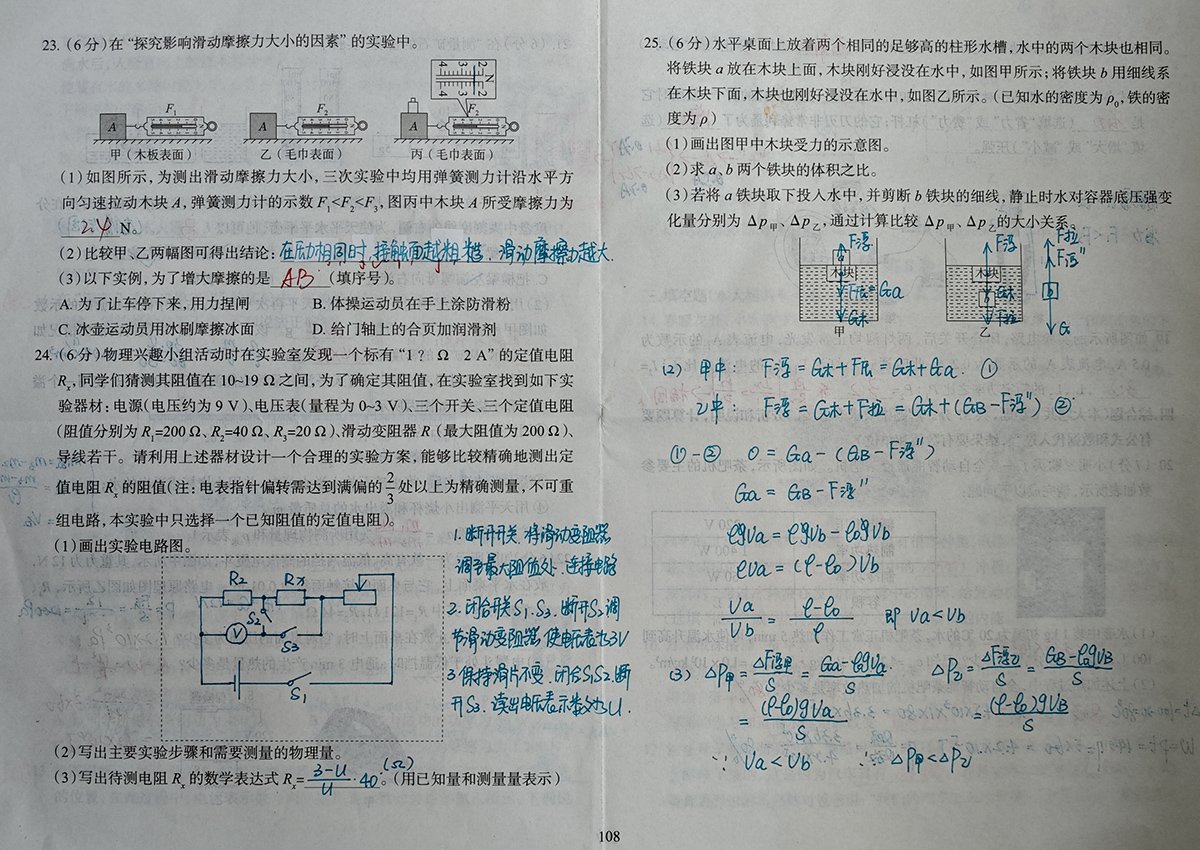 23.(6分)在“探究影响滑动摩擦力大小的因素”的实验中。
4 3 2 N
4 3 2
F₁ F₂ F₂
A A A
甲(木板表面) 乙(毛巾表面) 丙(毛巾表面)
(1)如图所示,为测出滑动摩擦力大小,三次实验中均用弹簧测力计沿水平方
向匀速拉动木块A,弹簧测力计的示数F₁<F₂<F₃,图丙中木块A所受摩擦力为
2.4 N。
(2)比较甲、乙两幅图可得出结论:在压力相同时,接触面越粗糙,滑动摩擦力越大.
(3)以下实例,为了增大摩擦的是 AB (填序号)。
A. 为了让车停下来,用力捏闸 B. 体操运动员在手上涂防滑粉
C. 冰壶运动员用冰刷摩擦冰面 D. 给门轴上的合页加润滑剂
24.(6分)物理兴趣小组活动时在实验室发现一个标有“1? Ω 2 A”的定值电阻
Rₓ,同学们猜测其阻值在10~19 Ω之间,为了确定其阻值,在实验室找到如下实
验器材:电源(电压约为9 V)、电压表(量程为0~3 V)、三个开关、三个定值电阻
(阻值分别为R₁=200 Ω、R₂=40 Ω、R₃=20 Ω)、滑动变阻器R(最大阻值为200 Ω)、
导线若干。请利用上述器材设计一个合理的实验方案,能够比较精确地测出定
值电阻Rₓ的阻值(注:电表指针偏转需达到满偏的2/3处以上为精确测量,不可重
组电路,本实验中只选择一个已知阻值的定值电阻)。
(1)画出实验电路图。
R₂ Rx
S₂
V S₃
S₁
1.断开开关,将滑动变阻器
调节最大阻值处,连接电路
2.闭合开关S₁.S₃.断开S₂调
节滑动变阻器,使电压表为3V
3.保持滑片不变,闭合S₁S₂.断
开S₃.读出电压表示数为U.
(2)写出主要实验步骤和需要测量的物理量。
(3)写出待测电阻Rₓ的数学表达式Rₓ= (3-U)/U · 40 (Ω)。(用已知量和测量量表示)
25.(6分)水平桌面上放着两个相同的足够高的柱形水槽,水中的两个木块也相同。
将铁块a放在木块上面,木块刚好浸没在水中,如图甲所示;将铁块b用细线系
在木块下面,木块也刚好浸没在水中,如图乙所示。(已知水的密度为ρ₀,铁的密
度为ρ)
(1)画出图甲中木块受力的示意图。
(2)求a、b两个铁块的体积之比。
(3)若将a铁块取下投入水中,并剪断b铁块的细线,静止时水对容器底压强变
化量分别为Δp甲、Δp乙,通过计算比较Δp甲、Δp乙的大小关系。
F浮 F浮 F拉
F浮''
木块 木块
F压=Ga
G木 G木 B
F拉 G
甲 乙
(2) 甲中: F浮=G木+F压=G木+Ga. ①
乙中: F浮=G木+F拉=G木+(GB-F浮'') ②
①-② 0=Ga-(GB-F浮'')
Ga=GB-F浮''
ρgVa=ρgVb-ρ₀gVb
ρVa=(ρ-ρ₀)Vb
Va/Vb=(ρ-ρ₀)/ρ 即Va<Vb
(3) ΔP甲=ΔF浮甲/S=(Ga-ρ₀gVa)/S ΔP乙=ΔF浮乙/S=(GB-ρ₀gVB)/S
=(ρ-ρ₀)gVa/S =(ρ-ρ₀)gVB/S
∵Va<Vb ∴ΔP甲<ΔP乙
108